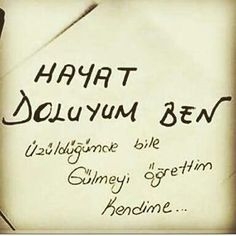 HAYAT
DOLUYUM BEN
Üzüldüğümde bile
Gülmeyi öğrettim
Kendime...